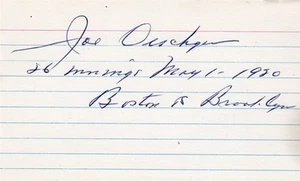 Joe Oeschger
26 innings May 1-1920
Boston vs Brooklyn